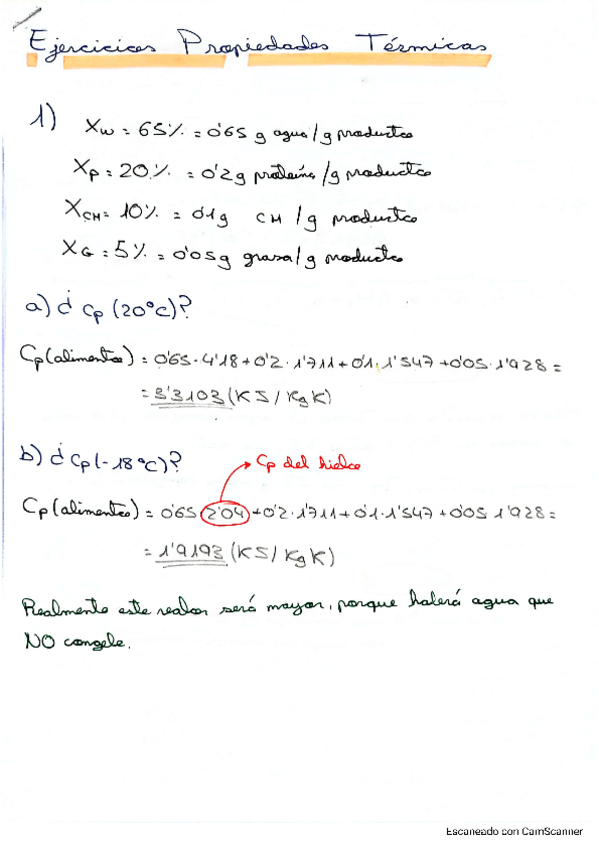 Ejercicios Propiedades Térmicas
1) Xw = 65% = 0'65 g agua/g producto
Xp = 20% = 0'2g proteína/g producto
XCH = 10% = 0'1g CH/g producto
XG = 5% = 0'05g grasa/g producto
a) ¿Cp (20ºC)?
Cp(alimento) = 0'65·4'18+0'2·1'711+0'1·1'547+0'05·1'928=
= 3'3103 (KJ/KgK)
b) ¿Cp(-18ºC)?
Cp del hielo
Cp(alimento) = 0'65 2'04+0'2·1'711+0'1·1'547+0'05 1'928=
= 1'9193 (KJ/KgK)
Realmente este valor será mayor, porque haberá agua que
NO congele.
Escaneado con CamScanner